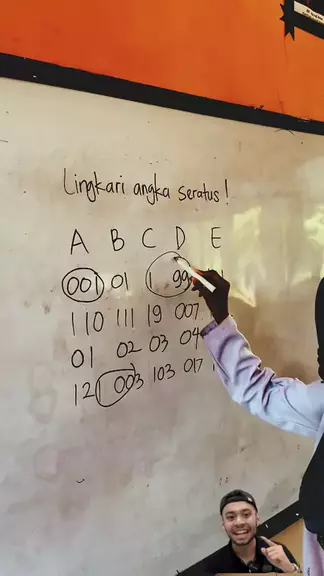 Lingkari angka seratus!
A B C D E
001 01 1 99
110 111 19 007
01 02 03 04
12 1 003 103 017